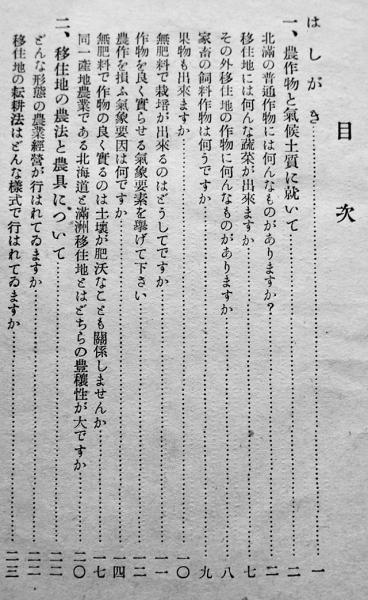 目次
はしがき……一
一、農作物と氣候土質に就いて……二
北滿の普通作物には何んなものがありますか?……二
移住地には何んな蔬菜が出來ますか……七
その外移住地の作物に何んなものがありますか……八
家畜の飼料作物は何うですか……九
果物も出來ますか……一〇
無肥料で栽培が出來るのはどうしてですか……一一
作物を良く實らせる氣象要素を擧げて下さい……一二
農作を損ふ氣象要因は何ですか……一四
無肥料で作物の良く實るのは土壤が肥沃なことも關係しませんか……一七
同一產地農業である北海道と滿洲移住地とはどちらの豊穰性が大ですか……二〇
二、移住地の農法と農具について……二二
どんな形態の農業經營が行はれてゐますか……二二
移住地の耘耕法はどんな樣式で行はれてゐますか……二三